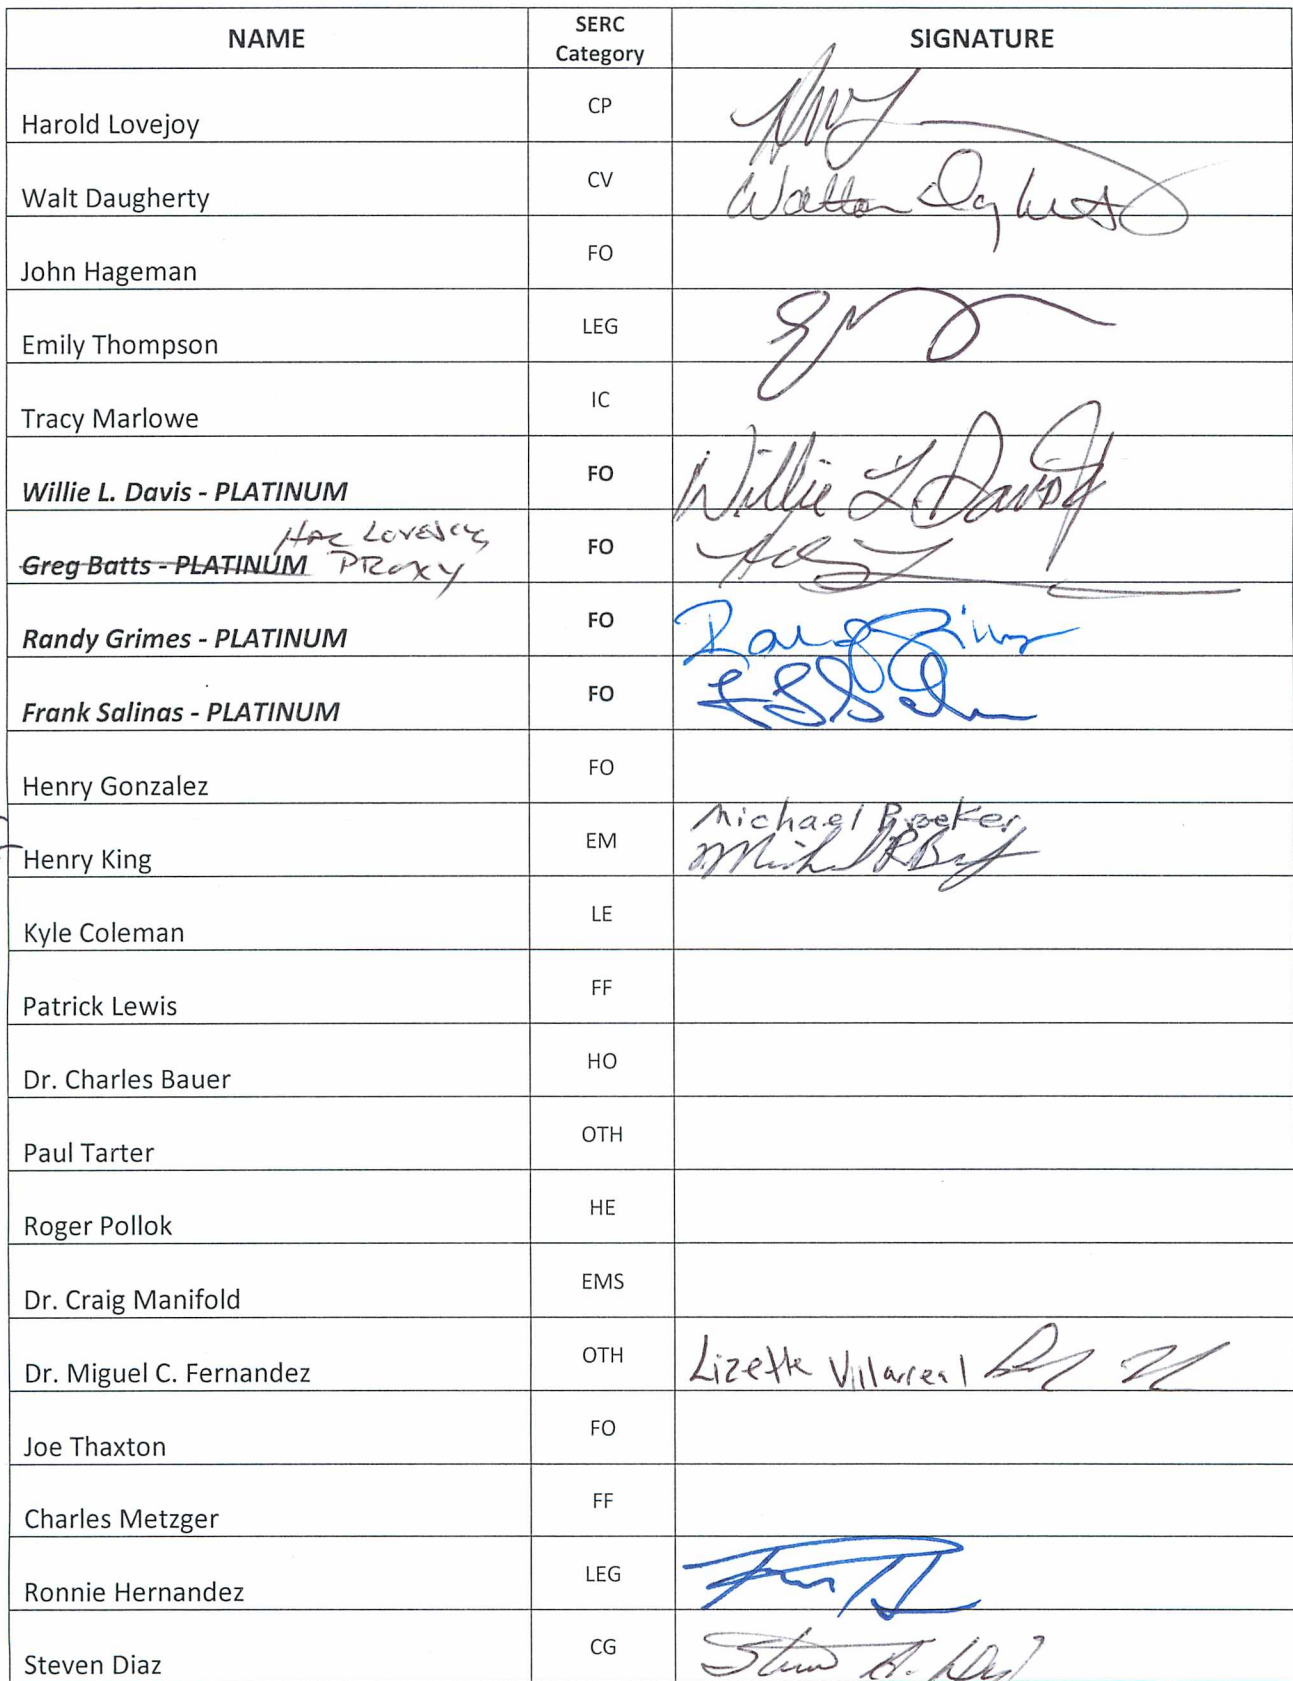 NAME SERC Category SIGNATURE
Harold Lovejoy CP
Walt Daugherty CV Walton
John Hageman FO
Emily Thompson LEG
Tracy Marlowe IC
Willie L. Davis - PLATINUM FO Willie L. Davis
Greg Batts - PLATINUM Hal Lovejoy PROXY FO
Randy Grimes - PLATINUM FO Randy Grimes
Frank Salinas - PLATINUM FO
Henry Gonzalez FO
Henry King EM Michael
Kyle Coleman LE
Patrick Lewis FF
Dr. Charles Bauer HO
Paul Tarter OTH
Roger Pollok HE
Dr. Craig Manifold EMS
Dr. Miguel C. Fernandez OTH Lizette Villarreal
Joe Thaxton FO
Charles Metzger FF
Ronnie Hernandez LEG
Steven Diaz CG